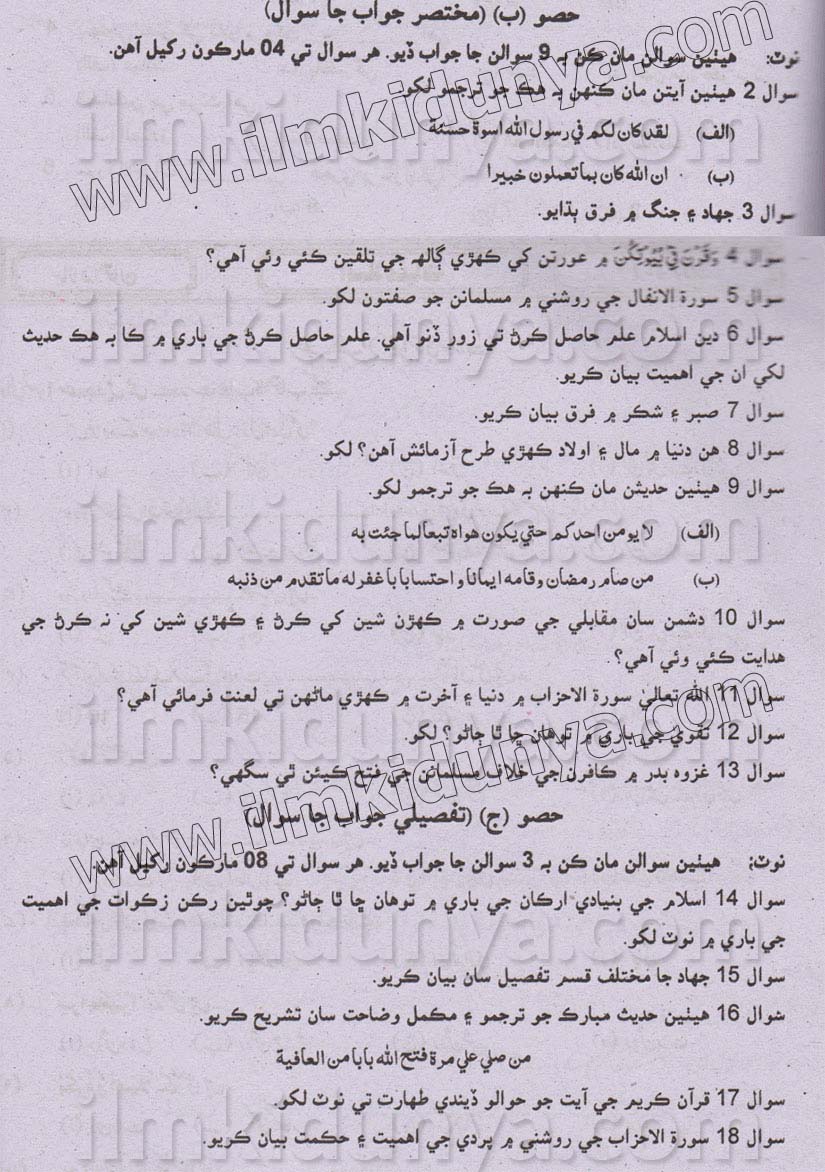 حصو (ب) (مختصر جواب جا سوال)
نوٽ: هيٺين سوالن مان ڪن به 9 سوالن جا جواب ڏيو. هر سوال تي 04 مارڪون رکيل آهن.
سوال 2 هيٺين آيتن مان ڪنهن به هڪ جو ترجمو لکو.
(الف) لقد كان لكم في رسول الله اسوة حسنة
(ب) ان الله كان بما تعملون خبيرا
سوال 3 جهاد ۽ جنگ ۾ فرق ٻڌايو.
سوال 4 وَقَرْنَ فِيْ بُيُوْتِكُنَّ ۾ عورتن کي ڪهڙي ڳالهه جي تلقين ڪئي وئي آهي؟
سوال 5 سورة الانفال جي روشني ۾ مسلمانن جو صفتون لکو.
سوال 6 دين اسلام علم حاصل ڪرڻ تي زور ڏنو آهي. علم حاصل ڪرڻ جي باري ۾ ڪا به هڪ حديث
لکي ان جي اهميت بيان ڪريو.
سوال 7 صبر ۽ شڪر ۾ فرق بيان ڪريو.
سوال 8 هن دنيا ۾ مال ۽ اولاد ڪهڙي طرح آزمائش آهن؟ لکو.
سوال 9 هيٺين حديثن مان ڪنهن به هڪ جو ترجمو لکو.
(الف) لا يومن احدكم حتي يكون هواه تبعا لما جئت به
(ب) من صام رمضان وقامه ايمانا و احتسابا با غفر له ما تقدم من ذنبه
سوال 10 دشمن سان مقابلي جي صورت ۾ ڪهڙن شين کي ڪرڻ ۽ ڪهڙي شين کي نہ ڪرڻ جي
هدايت ڪئي وئي آهي؟
سوال 11 الله تعالىٰ سورة الاحزاب ۾ دنيا ۽ آخرت ۾ ڪهڙي ماڻهن تي لعنت فرمائي آهي؟
سوال 12 تقوي جي باري ۾ توهان ڇا ٿا ڄاڻو؟ لکو.
سوال 13 غزوه بدر ۾ ڪافرن جي خلاف مسلمانن جي فتح ڪيئن ٿي سگهي؟
حصو (ج) (تفصيلي جواب جا سوال)
نوٽ: هيٺين سوالن مان ڪن به 3 سوالن جا جواب ڏيو. هر سوال تي 08 مارڪون رکيل آهن.
سوال 14 اسلام جي بنيادي ارڪان جي باري ۾ توهان ڇا ٿا ڄاڻو؟ چوٿين رڪن زڪوات جي اهميت
جي باري ۾ نوٽ لکو.
سوال 15 جهاد جا مختلف قسم تفصيل سان بيان ڪريو.
سوال 16 هيٺين حديث مبارڪ جو ترجمو ۽ مڪمل وضاحت سان تشريح ڪريو.
من صلي علي مرة فتح الله بابا من العافية
سوال 17 قرآن ڪريم جي آيت جو حوالو ڏيندي طهارت تي نوٽ لکو.
سوال 18 سورة الاحزاب جي روشني ۾ پردي جي اهميت ۽ حڪمت بيان ڪريو.
www.ilmkidunya.com
ilmkidunya.com
ilmkidunya.com
ilmkidunya.com
www.ilmkidunya.com
ilmkidunya.com
ilmkidunya.com